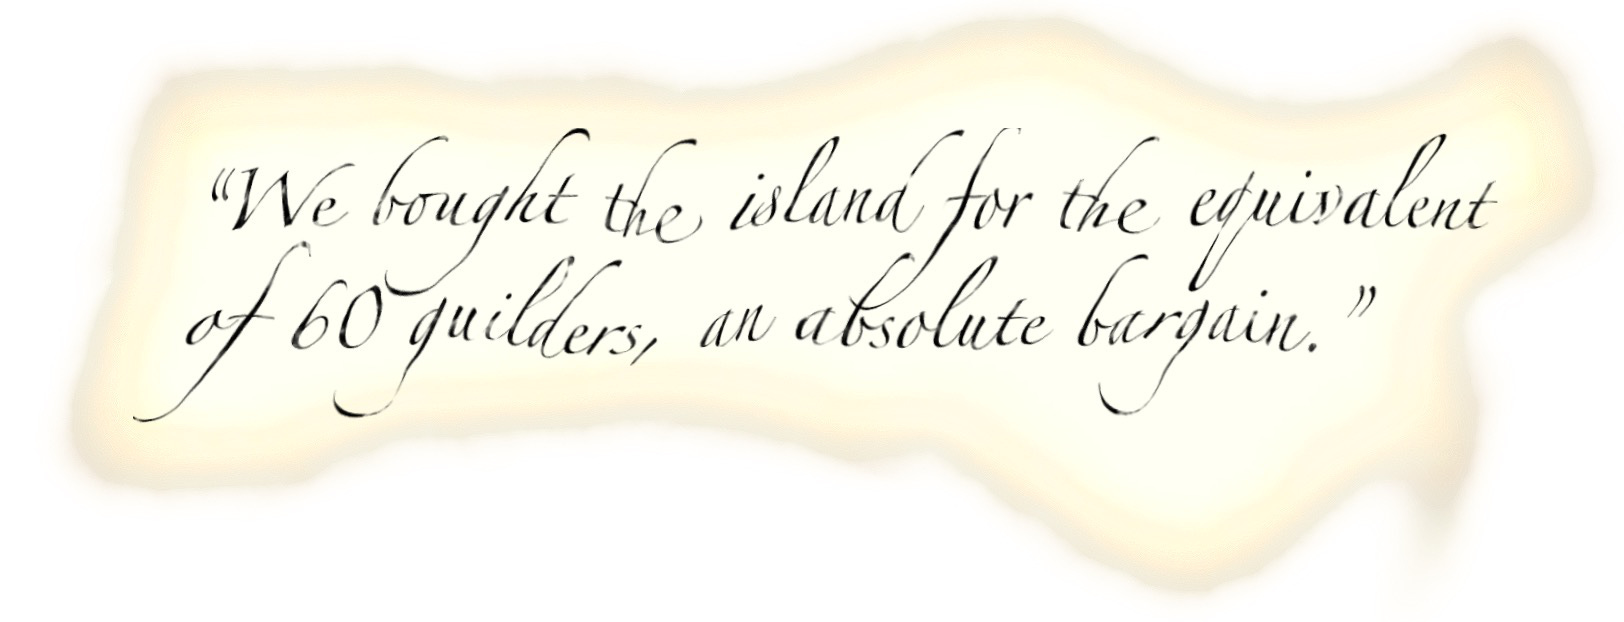 “We bought the island for the equivalent
of 60 guilders, an absolute bargain.”